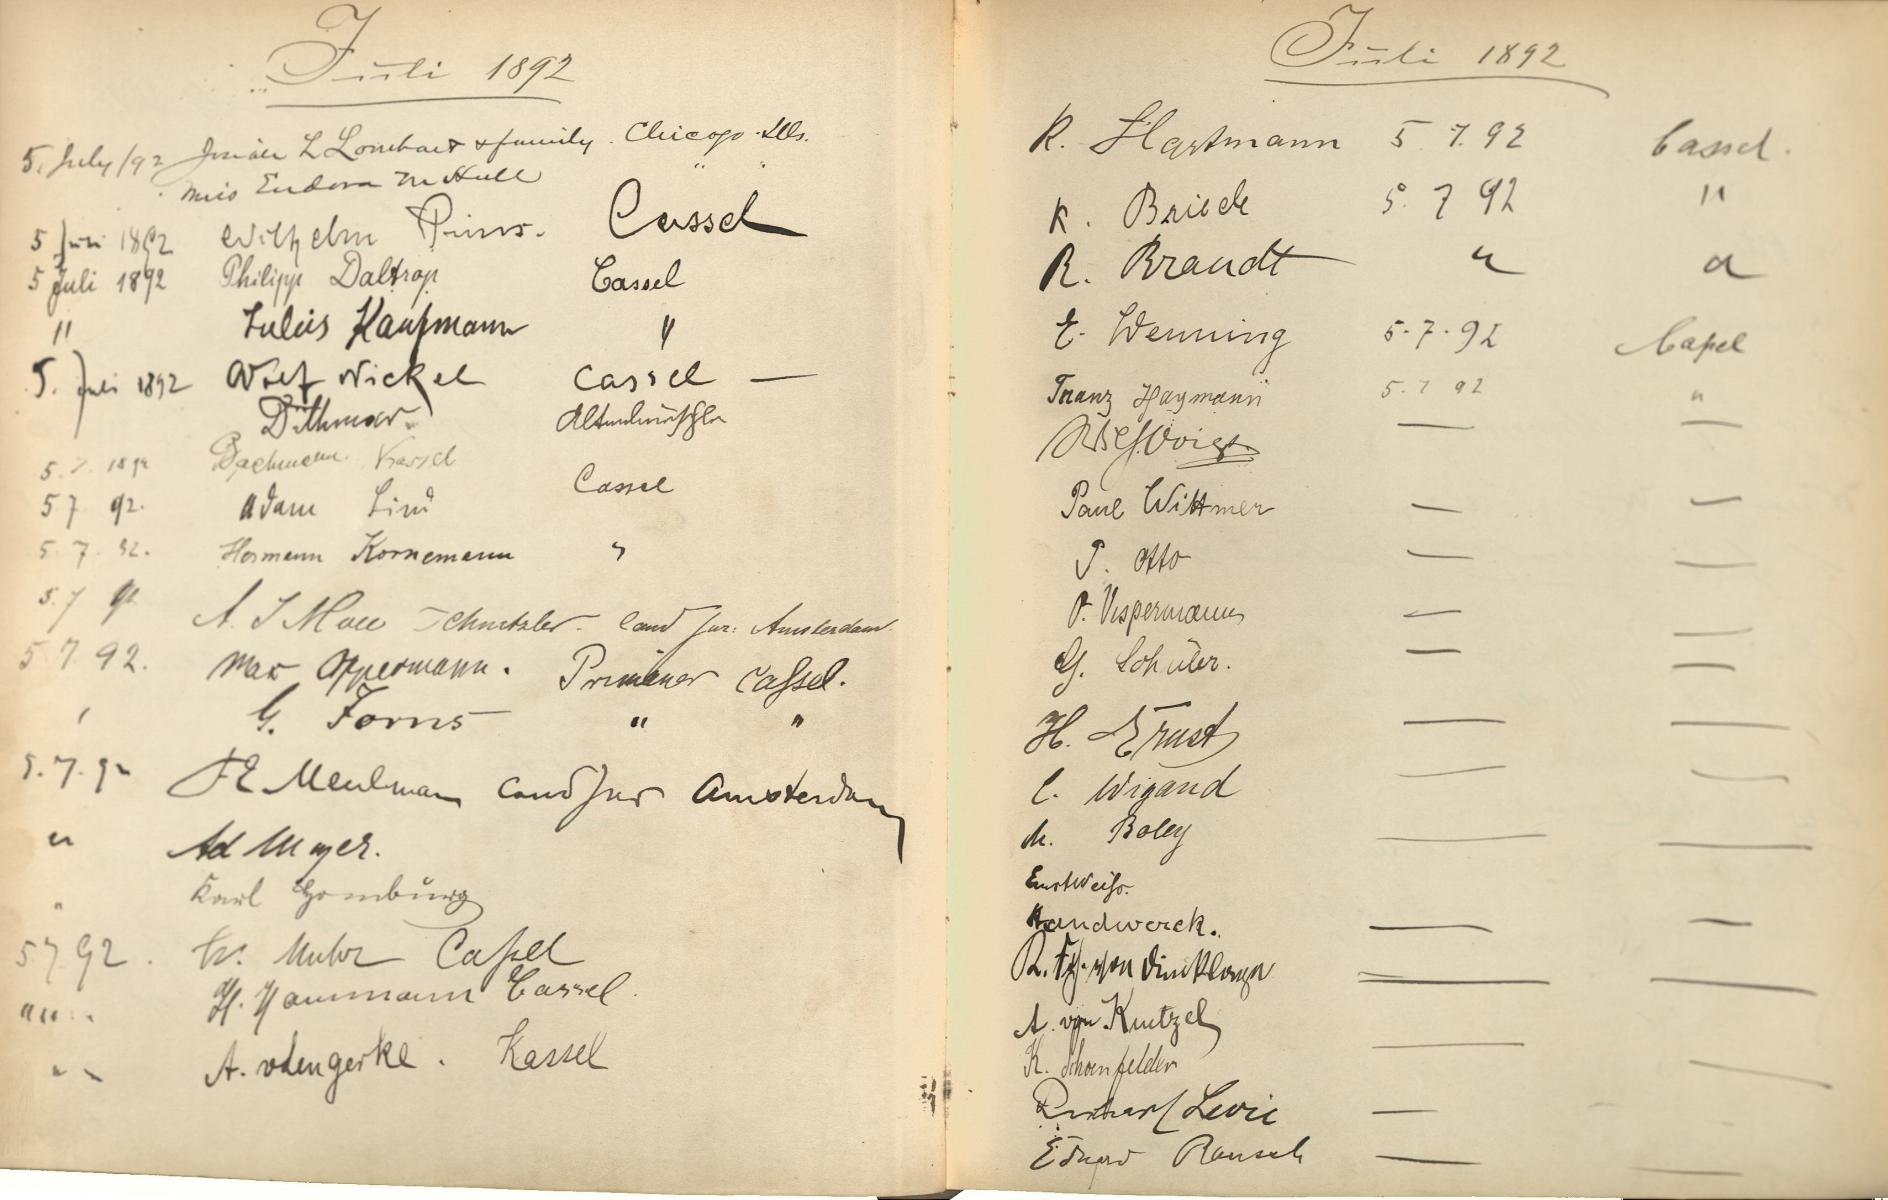 Juli 1892
5. July/92 Josiah L Lombard & family. Chicago. Ills.
Miss Eudora M Hull " "
5 Juli 1892 Wilhelm Prins. Cassel
5 Juli 1892 Philipp Daltrop Cassel
" Julius Kaufmann "
5. Juli 1892 Adolf Nickel Cassel —
Dithmar.
5.7.1892 Bachmann Kassel
Cassel
5 7 92. Adam Lind
5. 7. 92. Hermann Kornemann "
5.7 92 A. J Mac Schnitzler. Cand jur: Amsterdam.
5 7 92. Max Oppermann. Primaner Cassel.
' G. Forns " "
5.7.92 Meulman Cand jur Amsterdam
" Ad Meyer.
" Karl Homburg
5 7 92. Muhr Cassel
" " " " H. Hammann Cassel.
" " A. v Lengerke. Kassel
Juli 1892
R. Hartmann 5 7. 92 Cassel.
K. Briede 5. 7 92 "
R. Brandt " "
E. Wenning 5.7.92 Cassel
Franz Haymann 5.7 92 "
Voigt — —
Paul Wittmer — —
P. Otto — —
O. Vespermann — —
G. Schüler. — —
H. Ernst — —
C. Wigand — —
M. Boley — —
Ernst Weiß.
Handwerck. — —
R. Frh. von Dincklage — —
A. von Kuntzel
K. Schoenfelder — —
Levie —
Eduard Rausch — —